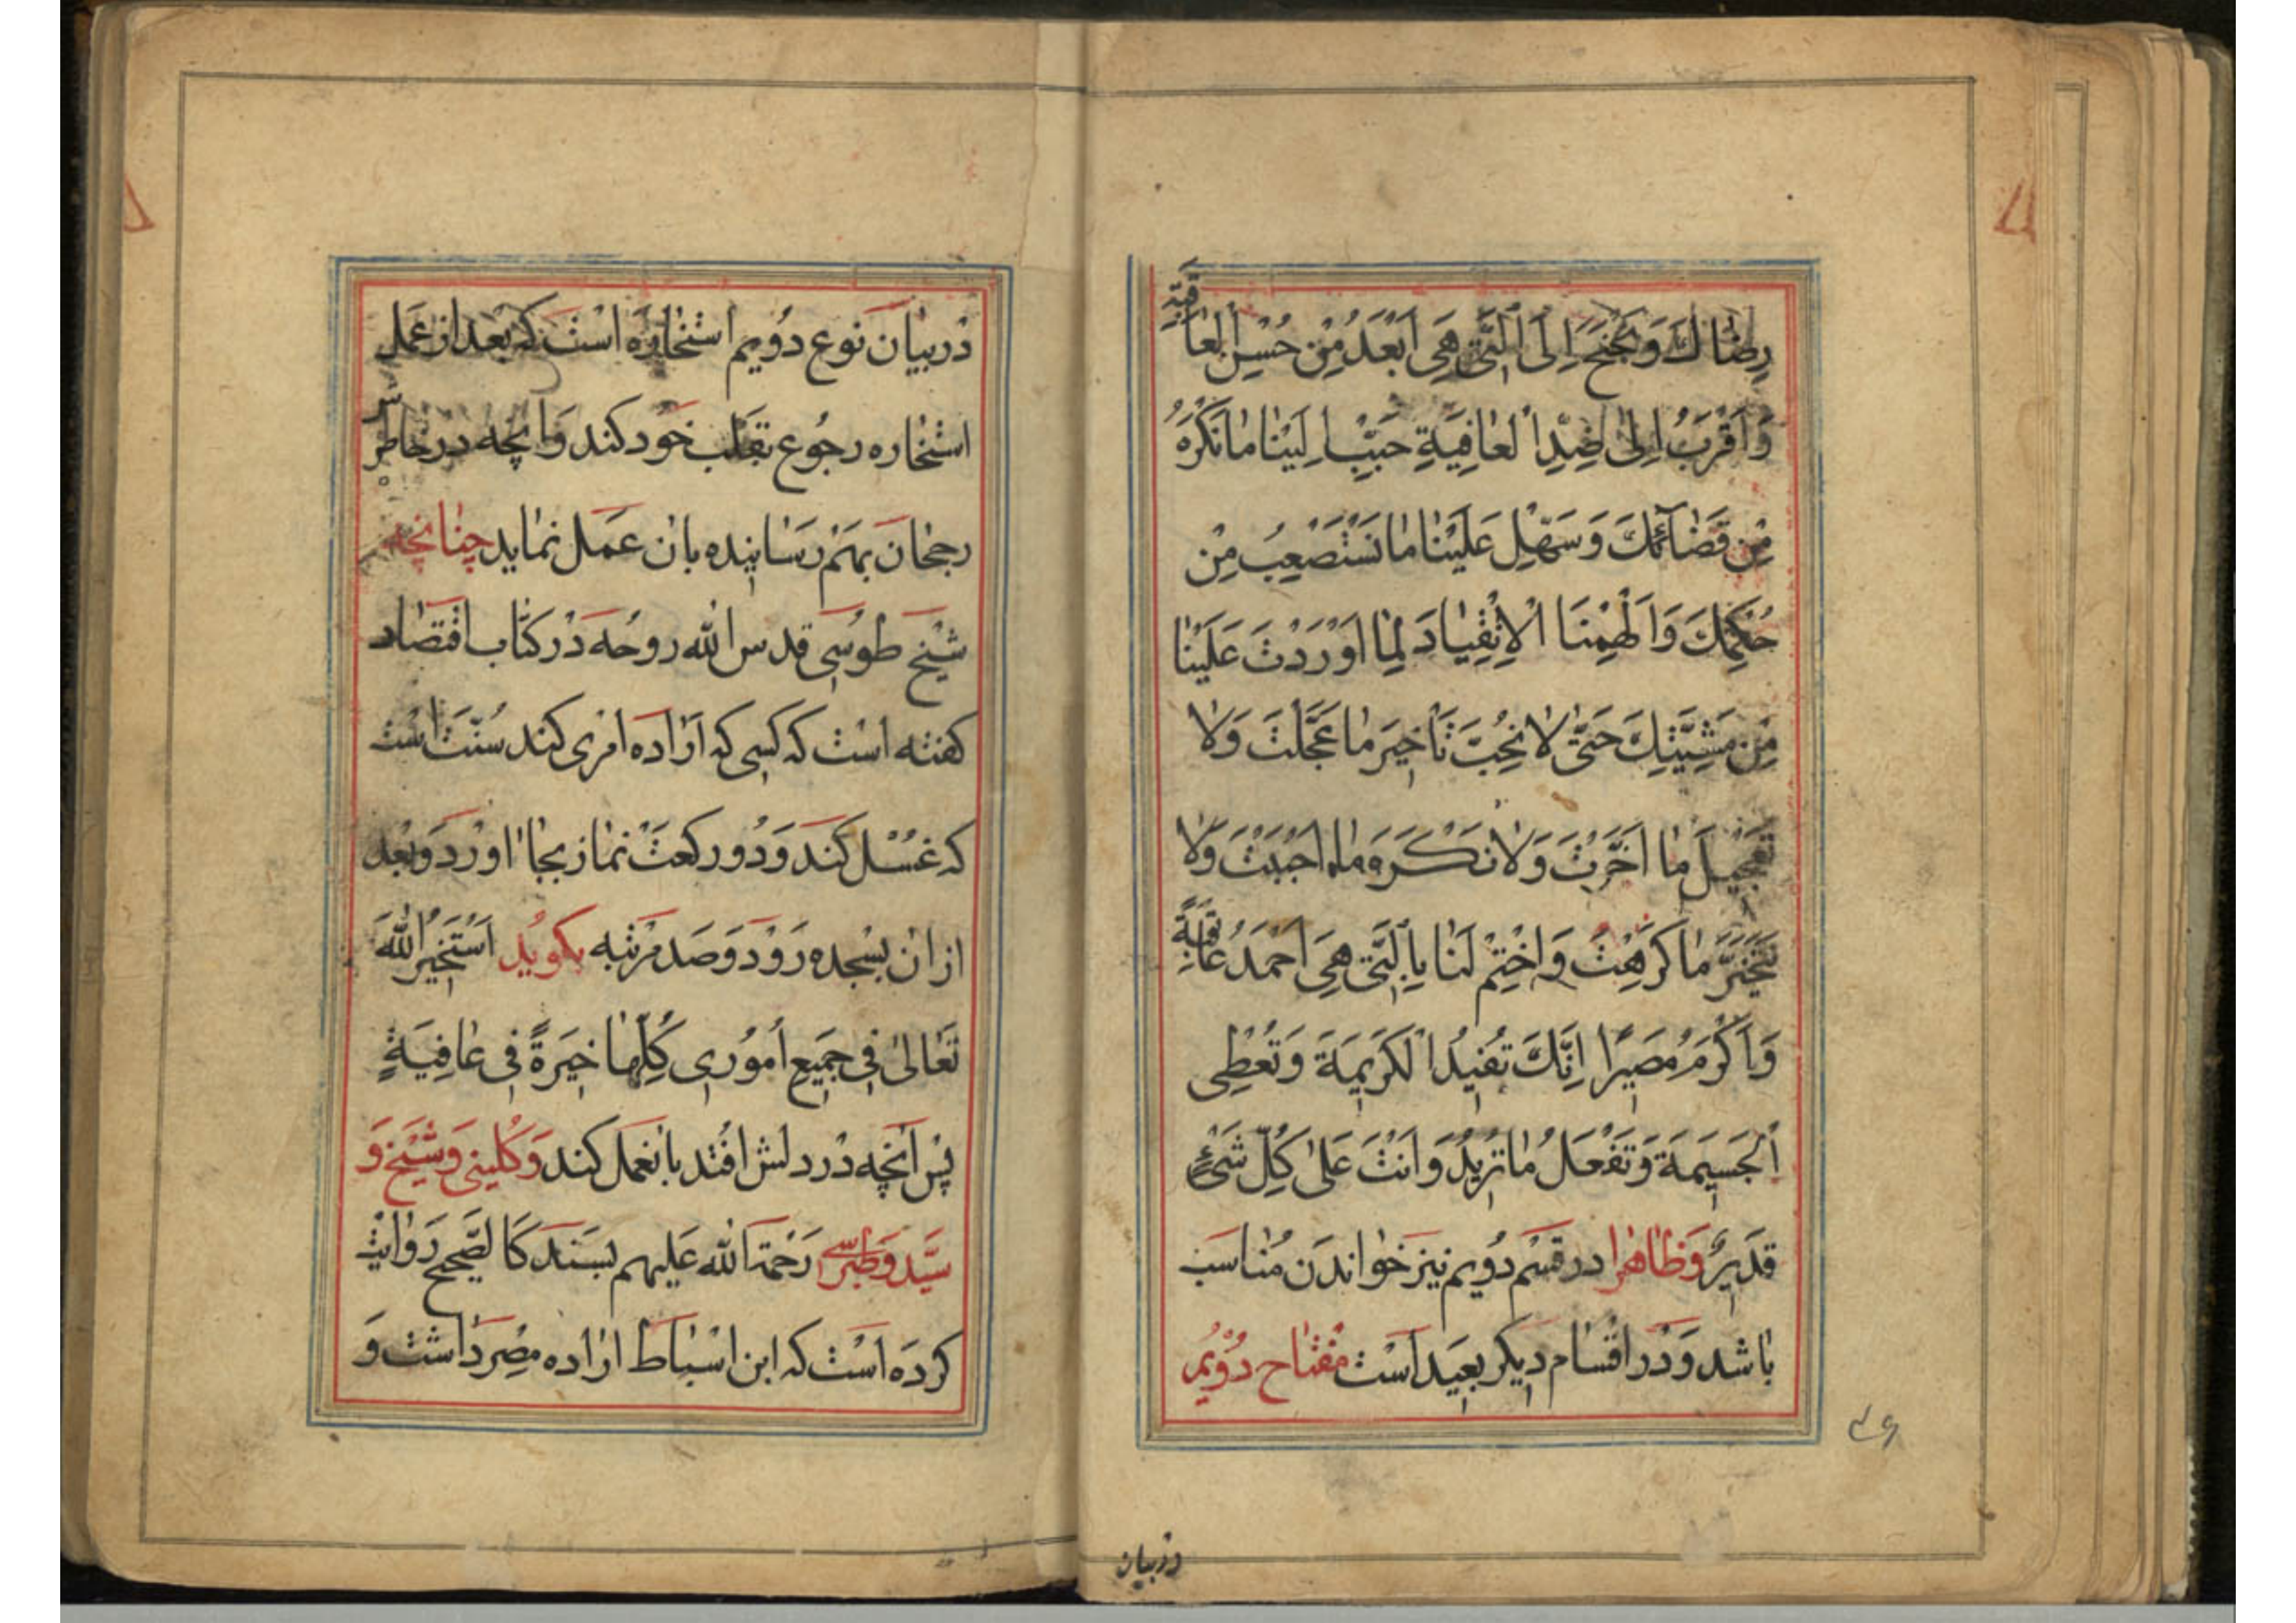 رِضٰاكَ وَ نَجْنَحَ اِلَى الَّتى هِىَ اَبْعَدُ مِنْ حُسْنِ الْعاقِبَةِ
وَاَقْرَبُ اِلىٰ ضِدِّ الْعٰافِيَةِ حَبِّبْ اِلَيْنٰا مٰا نَكْرَهُ
مِنْ قَضٰآئِكَ وَسَهِّلْ عَلَيْنٰا مٰا نَسْتَصْعِبُ مِنْ
حُكْمِكَ وَاَلْهِمْنَا الْاِنْقِيٰادَ لِمٰا اَوْرَدْتَ عَلَيْنٰا
مِنْ مَشِيَّتِكَ حَتّىٰ لاٰ نُحِبَّ تَاْخيرَ مٰا عَجَّلْتَ وَلاٰ
تَعْجيلَ مٰا اَخَّرْتَ وَلاٰ نَكْرَهَ مٰا اَحْبَبْتَ وَلاٰ
نَتَخَيَّرَ مٰا كَرِهْتَ وَاخْتِمْ لَنٰا بِالَّتى هِىَ اَحْمَدُ عٰاقِبَةً
وَاَكْرَمُ مَصيرًا اِنَّكَ تُفيدُ الْكَريمَةَ وَتُعْطِى
الْجَسيمَةَ وَتَفْعَلُ مٰا تُريدُ وَاَنْتَ عَلىٰ كُلِّ شَىْءٍ
قَديرٌ وَظٰاهرا در قسْم دُويم نيز خوٰاندن مُنٰاسب
بٰاشد وَدْر اقْسٰام ديكر بعيد اَسْت مفْتٰاح دُوْيُم
٤٦
در بيان
دْربيٰان نَوع دُويم اسْتخٰاره اسْت كه بعد از عَمل
استخٰاره رجُوع بقلب خَود كند وَ آنچه در خاطرش
رجحٰان بهَمْ رسٰانيده بان عمَل نمٰايد چنٰانچه
شيْخ طوُسى قدس الله روحُه دْر كتٰاب اقتصٰاد
كفته اسْت كه كسى كه ارٰاده امْرى كند سُنّت اسْت
كه غسْل كند وَدُو ركعتْ نمٰاز بجٰا اورد وَبعْد
از ان بسجده رَوْد وَ صَد مرْتبه بكويُد اَسْتَخيرُ اللّٰهَ
تَعٰالىٰ فى جَميعِ اُموُرى كُلِّهٰا خِيَرَةً فى عٰافِيَةٍ
پسْ آنچه دْر دلش افتد بانعمل كند وَ كُلينى وَشيْخ وَ
سيّد وَطبرسى رَحْمة الله عَليهم بسَند كَالصّحيح رَوٰايت
كرده اَسْت كه ابن اسْباط ارٰاده مصْر دٰاشت وَ